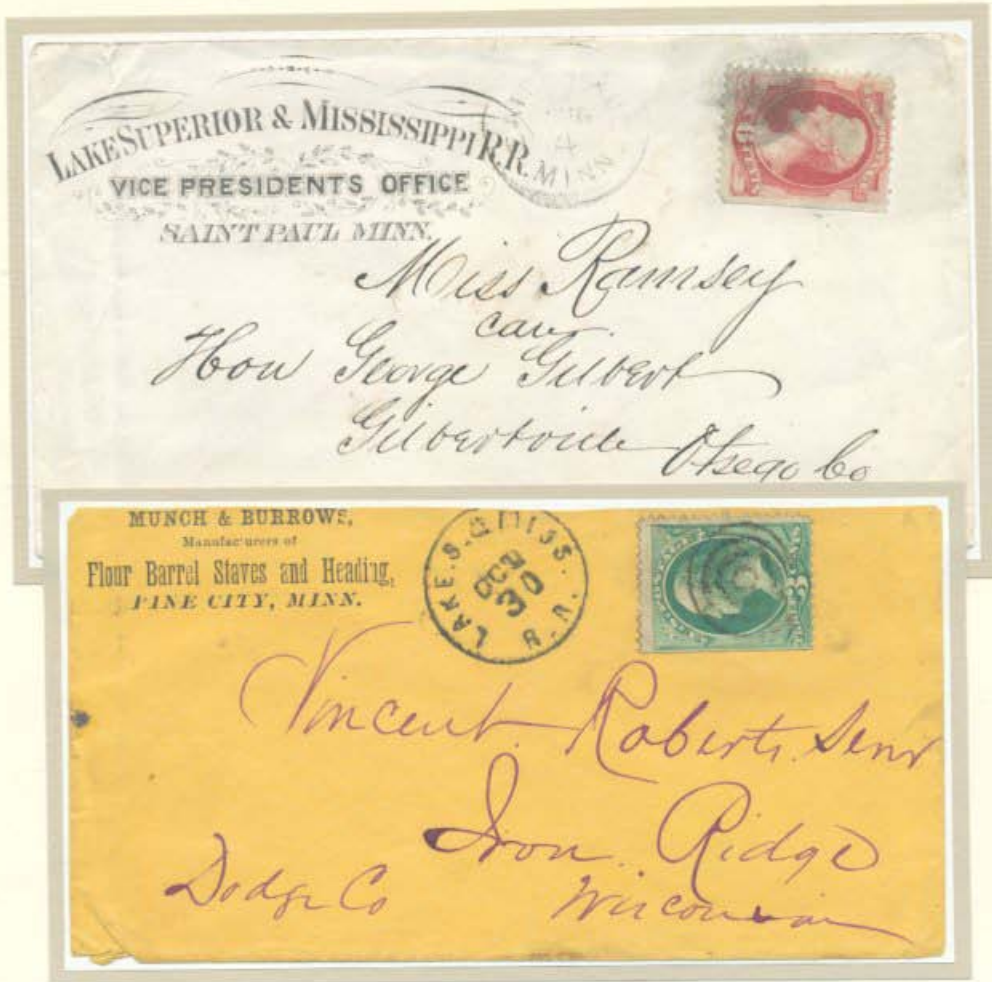 LAKE SUPERIOR & MISSISSIPPI R.R.
VICE PRESIDENTS OFFICE
SAINT PAUL MINN.
MINN
Miss Ramsey
care
Hon George Gilbert
Gilbertsville Otsego Co
MUNCH & BURROWS,
Manufacturers of
Flour Barrel Staves and Heading,
PINE CITY, MINN.
LAKE. S. & MISS. R. R.
OCT
30
Vincent Roberts Senr
Iron Ridge
Dodge Co Wisconsin